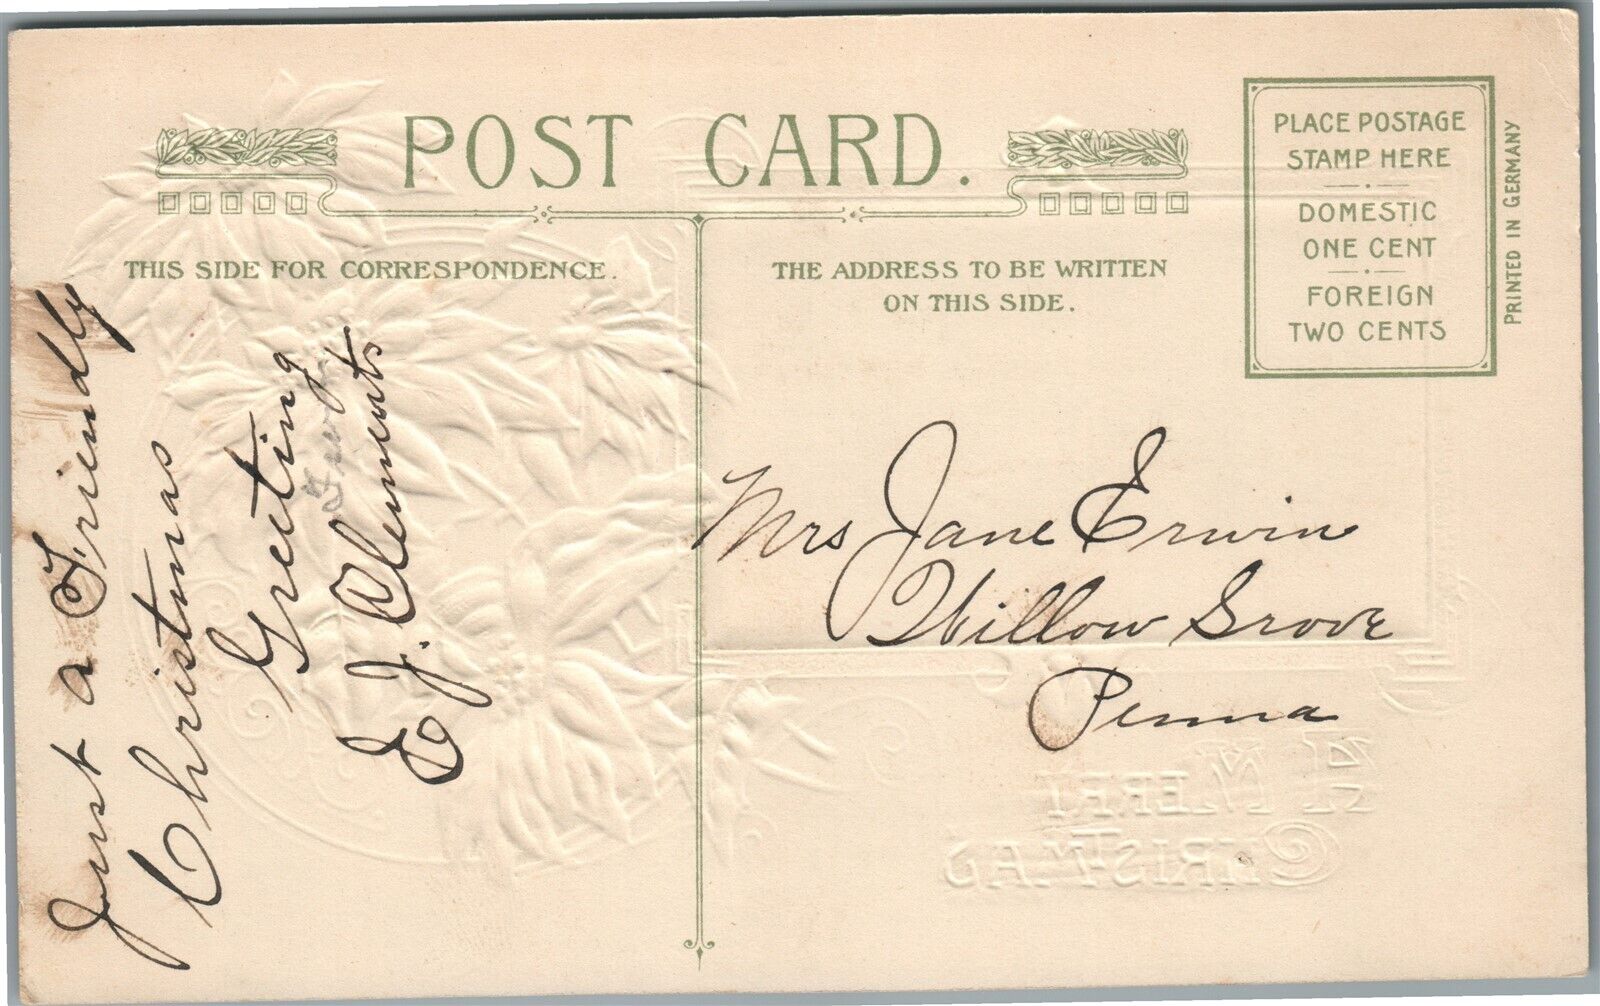 POST CARD.
THIS SIDE FOR CORRESPONDENCE.
THE ADDRESS TO BE WRITTEN
ON THIS SIDE.
PLACE POSTAGE
STAMP HERE
DOMESTIC
ONE CENT
FOREIGN
TWO CENTS
PRINTED IN GERMANY
Just a Friendly
Christmas
Greeting
E. J. Clements
Mrs Jane Erwin
Willow Grove
Penna
A MERRY
CHRISTMAS